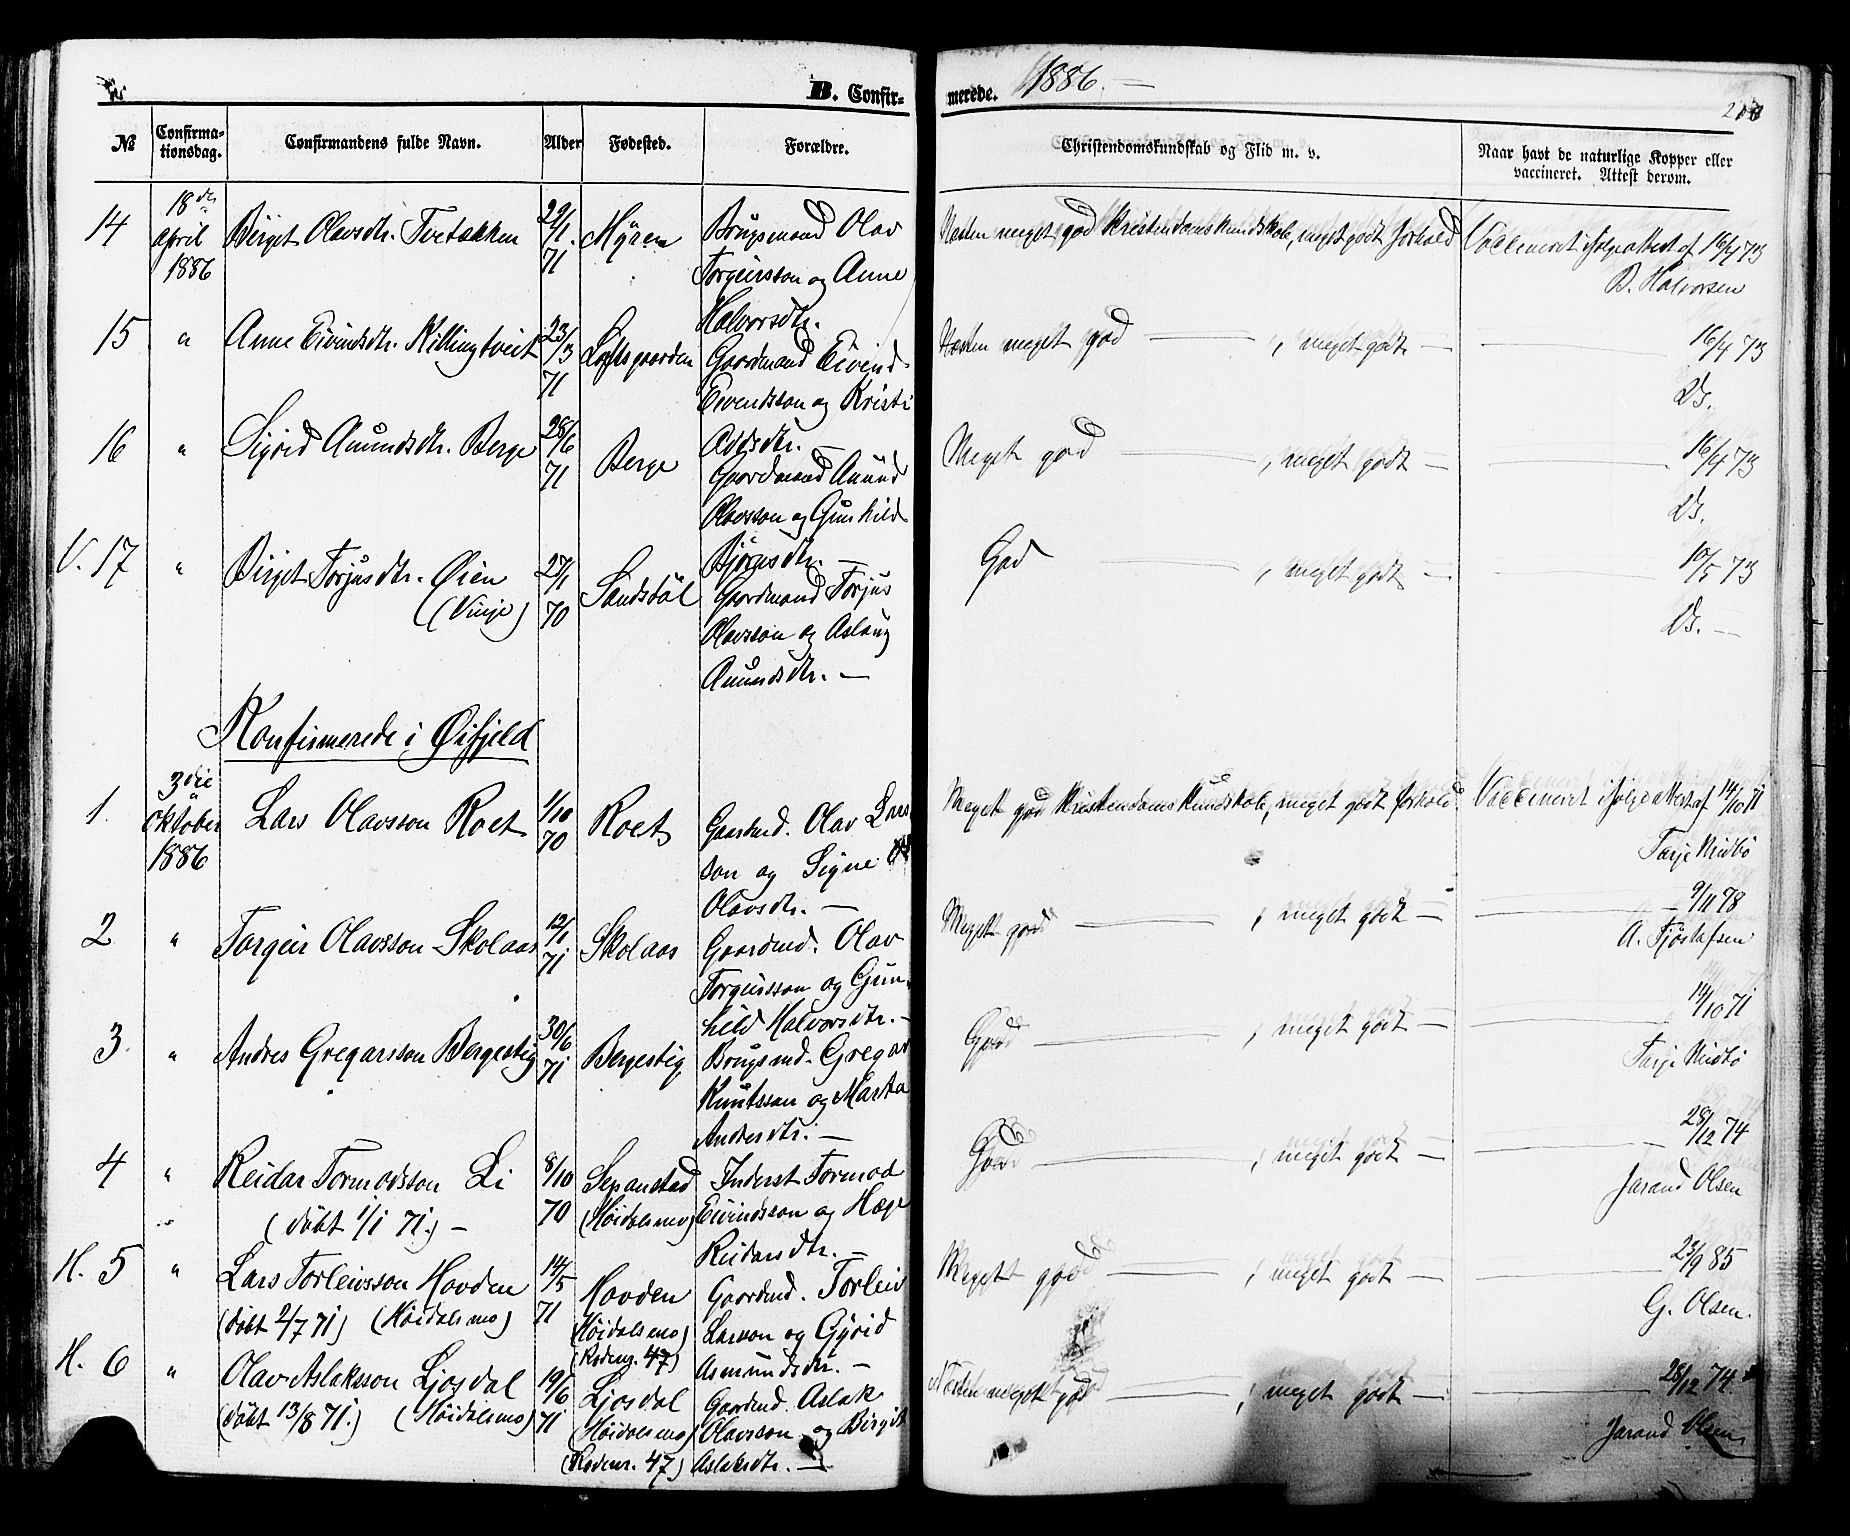 B. Confir-
merede. 1886. —
№
Confirma-
tionsdag.
Confirmandens fulde Navn.
Alder
Fødested.
Forældre.
Christendomskundskab og Flid m. v.
Naar havt de naturlige Kopper eller
vaccineret. Attest derom.
14
18de
April
1886
Birget Olavsdtr. Tvetakken
29/1.
71
Myren
Brugsmand Olav
Torgeirsson og Anne
Halvorsdtr.
Næsten meget god Kristendomskundskab, meget godt Forhold
Vaccineret ifølge Attest af 16/4 73
B. Halvorsen
15
"
Anne Eivindsdtr. Killingtveit
23/3
71
Loftsgaarden
Gaardmand Eivind
Eivendsson og Kristi
Addsdtr. —
Næsten meget god — , meget godt —
— 16/4 73
Ds.
16
"
Sigrid Aamundsdtr. Berge
28/6
71
Berge
Gaardmand Amund
Olavsson og Gunhild
Bjørnsdtr. —
Meget god — , meget godt —
— 16/4 73
Ds.
V. 17
"
Birget Torjusdtr. Øien
(Vinje)
27/1
70
Sandsdøl
Gaardmand Torjus
Olavsson og Aslaug
Aamundsdtr. —
God — , meget godt —
— 10/5 73
Ds. —
Konfirmerede i Øifjeld
1.
3die
Oktober
1886
Lars Olavsson Roet
1/10
70
Roet
Gaardmd. Olav Lars
son og Signe
Olavsdtr. —
Meget god Kristendomskundskab, meget godt Forhold.
Vaccineret ifølge Attest af 14/10 71
Tarje Midbø
2
"
Torgeir Olavsson Skolaas
12/1
71
Skolaas
Gaardmd. Olav
Torgeirsson og Gun-
hild Halvorsdtr. —
Meget god — , meget godt —
— 9/11 78
A. Tjøstafsen
3.
"
Andres Gregarsson Bergestig
30/6
71
Bergestig
Brugsmd. Gregar
Knutsson og Marta
Andersdtr. —
God — , meget godt —
— 14/10 71
Tarje Midbø
4
"
Reidar Tormodsson Li
(døbt 1/1 71.) —
8/10
70
(Høidalsmo)
Inderst Tormod
Eivindsson og Hæge
Reidarsdtr. —
God — , meget godt —
— 28/12 74
Jarand Olsen
H. 5
"
Lars Torleivsson Hovden
(døbt 2/7 71) (Høidalsmo)
14/5
71
Hovden
(Høidalsmo)
(Rodenr. 47)
Gaardmd. Torleiv
Larsson og Gyrid
Asmundsdtr. —
Meget god — , meget godt —
— 23/9 85
G. Olsen.
H. 6
"
Olav Aslaksson Ljosdal
(døbt 13/8 71.) (Høidalsmo)
19/6
71
Ljosdal
(Høidalsmo)
(Rodenr. 47)
Gaardmd. Aslak
Olavsson og Birgit
Aslaksdtr. —
Næsten meget god — , meget godt —
— 28/12 74
Jarand Olsen